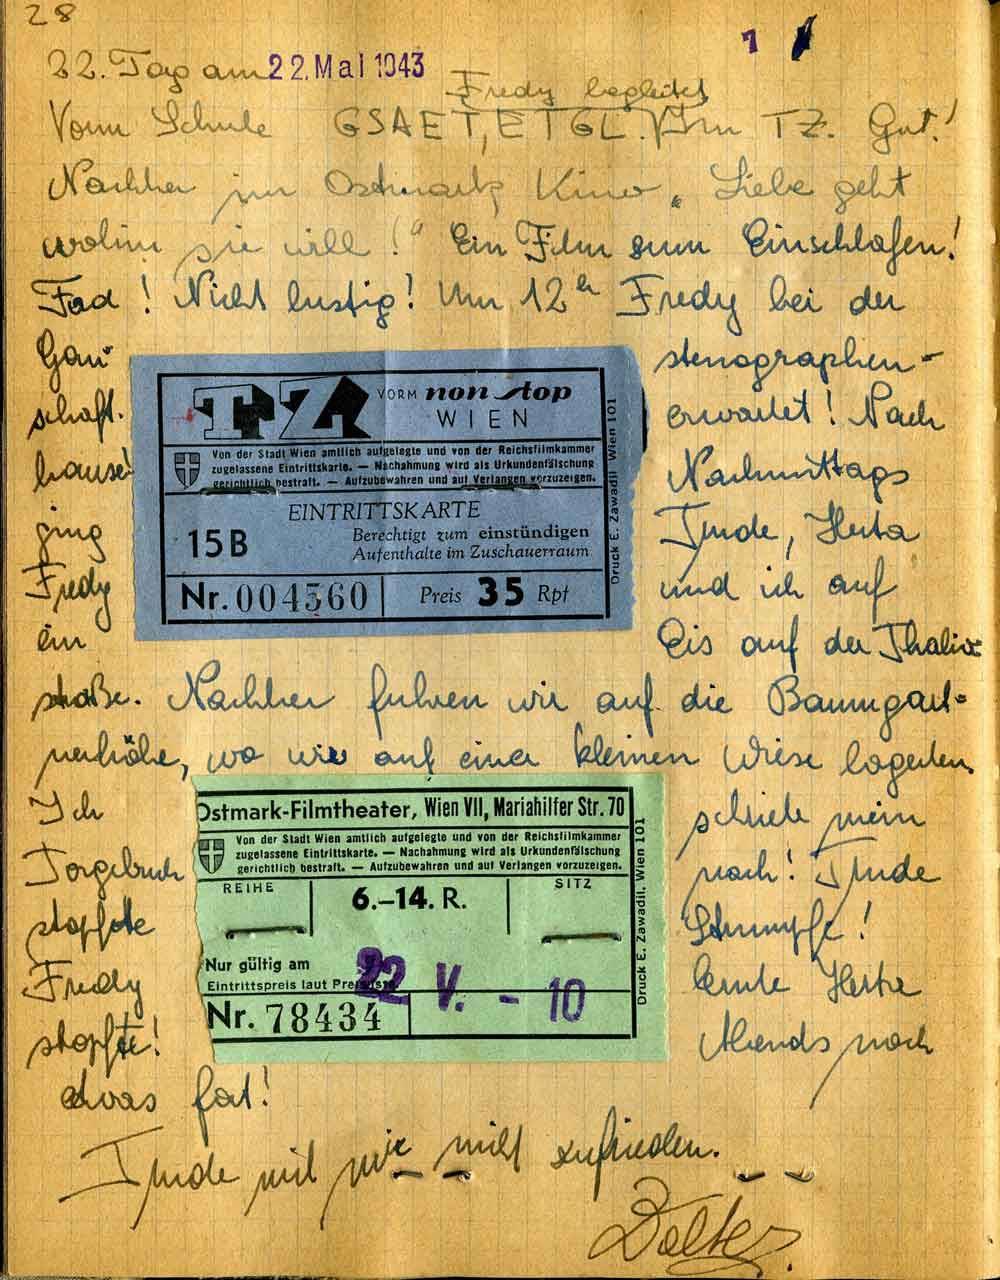 28
22. Tag am 22. Mai 1943
7
Fredy begleitet
Vorm Schule GSAET, ETGL. Im TZ. Gut!
Nachher im Ostmark Kino „Liebe geht
wohin sie will!“ Ein Film zum Einschlafen!
Fad! Nicht lustig! Um 12h Fredy bei der
Gau- stenographen-
schaft. erwartet! Nach
hause! Nachmittags
ging Trude, Herta
Fredy und ich auf
ein Eis auf der Thalia-
straße. Nachher fuhren wir auf die Baumgart-
nerhöhe, wo wir auf einer kleinen Wiese lagerten.
Ich schrieb mein
Torgebuch nach! Trude
stopfte Strümpfe!
Fredy lernte Herta
stopfte! Abends noch
etwas fort!
Trude mit mir nicht zufrieden.
Walter
TZ VORM non stop
WIEN
Von der Stadt Wien amtlich aufgelegte und von der Reichsfilmkammer
zugelassene Eintrittskarte. — Nachahmung wird als Urkundenfälschung
gerichtlich bestraft. — Aufzubewahren und auf Verlangen vorzuzeigen.
EINTRITTSKARTE
15 B Berechtigt zum einstündigen
Aufenthalte im Zuschauerraum
Nr. 004560 Preis 35 Rpf
Druck E. Zawadil Wien 101
Ostmark-Filmtheater, Wien VII, Mariahilfer Str. 70
Von der Stadt Wien amtlich aufgelegte und von der Reichsfilmkammer
zugelassene Eintrittskarte. — Nachahmung wird als Urkundenfälschung
gerichtlich bestraft. — Aufzubewahren und auf Verlangen vorzuzeigen.
REIHE 6.–14. R. SITZ
Nur gültig am 22 V. - 10
Eintrittspreis laut Preisliste
Nr. 78434
Druck E. Zawadil, Wien 101